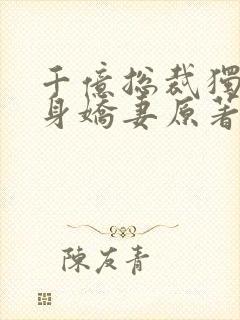 千億總裁獨
身嬌妻原著
陳友青